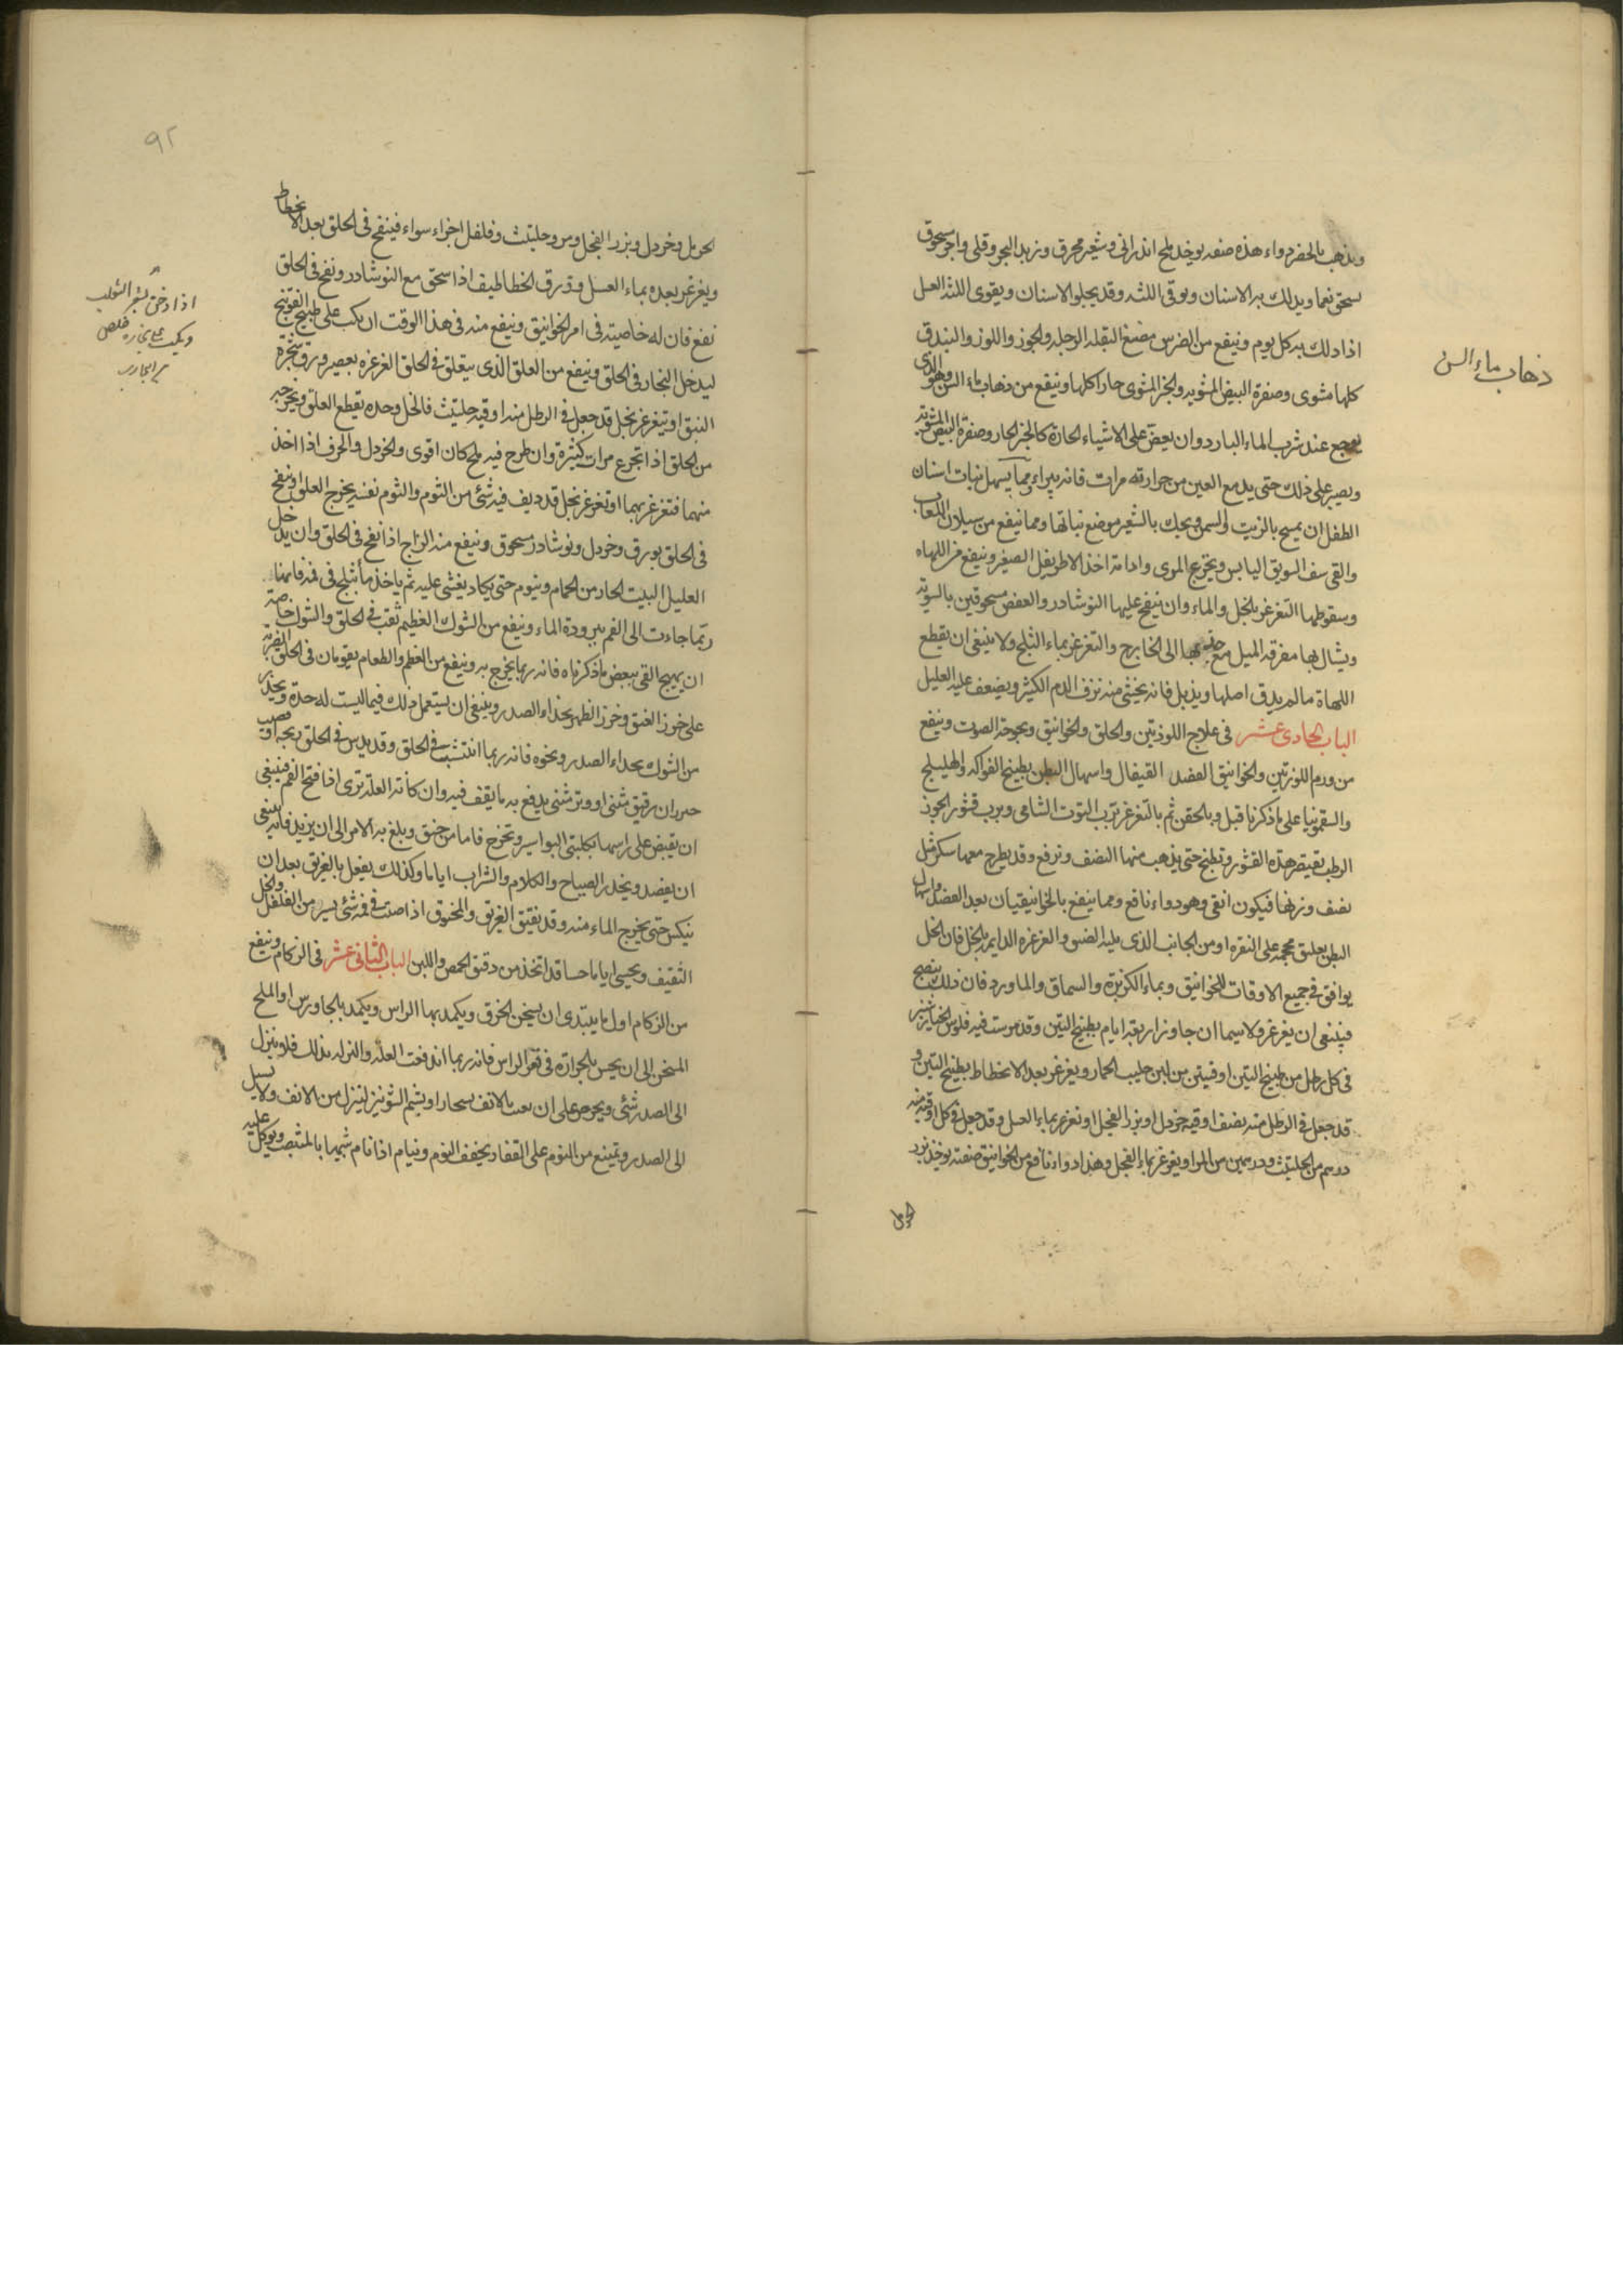 ويذهب بالحفر دواء هذه صفته يوخذ ملح اندرانى وشعير محرق وزبد البحر وقلى واجر مسحوق
يسحق نعما ويدلك به الاسنان ويوقى اللثه وقد يجلو الاسنان ويقوى اللثه العسل
اذا دلك به كل يوم وينفع من الضرس مضغ البقله الرجله والجوز واللوز والبندق
كلها مشوى وصفرة البيض المشويه والخبز المشوى حارا كلها وينفع من ذهاب ماء السن وهو الذى
يوجع عند شرب الماء البارد وان يعض على الاشياء الحارة كالخبز الحار وصفرة البيض المشويه
ويصبر على ذلك حتى يدمع العين من حرارته مرات فانه يبراء ومما يسهل نبات اسنان
الطفل ان يمسح بالزيت او السمن ويحك بالشعير موضع نباتها ومما ينفع من سيلان اللعاب
والقى سف السويق اليابس وتجرع المرى وادامة اخذ الاطريفل الصغير وينفع من اللهاه
وسقوطها التغرغر بالخل والماء وان ينفخ عليها النوشادر والعفص مسحوقين بالسويه
ويشال بها مغرفه الميل مع جذبها الى الخارج والتغرغر بماء الثلج ولا ينبغى ان يقطع
اللهاة مالم يدق اصلها ويذبل فانه يخشى منه نزف الدم الكثير ويضعف عليه العليل
الباب الحادى عشر فى علاج اللوزتين والحلق والخوانيق وبحوحة الصوت وينفع
من ورم اللوزتين والخوانيق الفصد القيفال واسهال البطن بطبيخ الفواكه والهليلج
والسقمونيا على ماذكرنا قبل وبالحقن ثم بالتغرغر برب التوت الشامى وبرب قشور الجوز
الرطب تعصر هذه القشور وتطبخ حتى يذهب منها النصف وترفع وقد يطرح معها سكر مثل
نصف وزنها فيكون انقى وهو دواء نافع ومما ينفع بالخوانيقيان بعد الفصد واسهال
البطن تعليق محجمه على النقره او من الجانب الذى يليه الضيق والغرغره الدايمه بالخل فان الخل
يوافق فى جميع الاوقات للخوانيق وبماء الكزبرة والسماق والماورد فان ذلك ينضج
فينبغى ان يغرغر ولاسيما ان جاوز اربعه ايام بطبيخ التين وقد مرست فيه فلوس الخيارشنبر
فى كل رطل من طبيخ التين اوقيتين من لبن حليب الحمار ويغرغر بعد الانحطاط بطبيخ التين و
قد جعل فى الرطل منه نصف اوقيه خردل او بزر الفجل او تغرغر بماء العسل وقد جعل فى كل اوقيه منه
درهم من الحلتيت ودرهمين من المر او يغرغر بماء الفجل وهذا دواء نافع من الخوانيق صفته يوخذ بزر
الحرمل
ذهاب ماء السن
٩٢
الحرمل وخردل وبزر الفجل ومر وحلتيت وفلفل اجزاء سواء فينفخ فى الحلق بعد الانحطاط
ويغرغر بعده بماء العسل وذرق الخطاطيف اذا سحق مع النوشادر ونفخ فى الحلق
نفع فان له خاصيته فى امر الخوانيق وينفع منه فى هذا الوقت ان يكب على طبيخ الفوتنج
ليدخل البخار فى الحلق وينفع من العلق الذى يتعلق فى الحلق الغرغره بعصير ورق شجرة
النبق او يتغرغر بخل قد جعل فى الرطل منه اوقيه حلتيث فالخل وحده يقطع العلق ويخرجه
من الحلق اذا تجرع مرات كثيرة وان طرح فيه ملح كان اقوى والخردل والحرف اذا اخذ
منهما فتغرغر بهما او تغرغر بخل قد ديف فيه شئ من الثوم والثوم نفسه يخرج العلق او نفخ
فى الحلق بورق وخردل ونوشادر مسحوق وينفع منه الزاج اذا نفخ فى الحلق وان يدخل
العليل البيت الحار من الحمام وينوم حتى يكاد يغشى عليه ثم ياخذ ماء ثلج فى فمه فانها
ربما جاءت الى الفم ببرودة الماء وينفع من الشوك العظيم ثقب فى الحلق والشوك خاصة
ان يهيج القى ببعض ماذكرناه فانه ربما يخرج به وينفع من العظم والطعام يقومان فى الحلق الضربة
على خرز العنق وخرز الظهر بحذاء الصدر وينبغى ان يستعمل ذلك فيما ليست له حدة ويحذر
من الشوك بحذاء الصدر ونحوه فانه ربما انتشب فى الحلق وقد يدس فى الحلق ريحه او قضيب
رقيق مثنى او وتر مثنى يدفع به مايقف فيه وان كانت العلة ترى اذا فتح الفم فينبغى
ان يقبض على راسها بكلبتى البواسير وتخرج فاما من خنق وبلغ به الامر الى ان يزبد فانه ينبغى
ان يفصد ويحذر الصياح والكلام والشراب اياما وكذلك يفعل بالغريق بعد ان
ينكس حتى يخرج الماء منه وقد يفيق الغريق والمخنوق اذا صب فى فمه شئ يسير من الفلفل والخل
الثقيف ويحسى اياما حسا قد اتخذ من دقيق الحمص واللبن الباب الثانى عشر فى الزكام وينفع
من الزكام اول ما يبتدى ان يسخن الخرق ويكمد بها الراس ويكمد بالجاورس او الملح
المسخن الى ان يحس بالحرارة فى قعر الراس فانه ربما اندفعت العله والنزله بذلك فلو ينزل
الى الصدر شئ ويحرص على ان الانف او يشم الشونيز لينزل من الانف ولا يسيل
الى الصدر ويمتنع من النوم على القفا ويخفف النوم وينام اذا نام شبيها بالمنتصب ويوكل عليه
اذا دخن بشعر الثعلب
ويكب على بخاره خلص
من المجارب